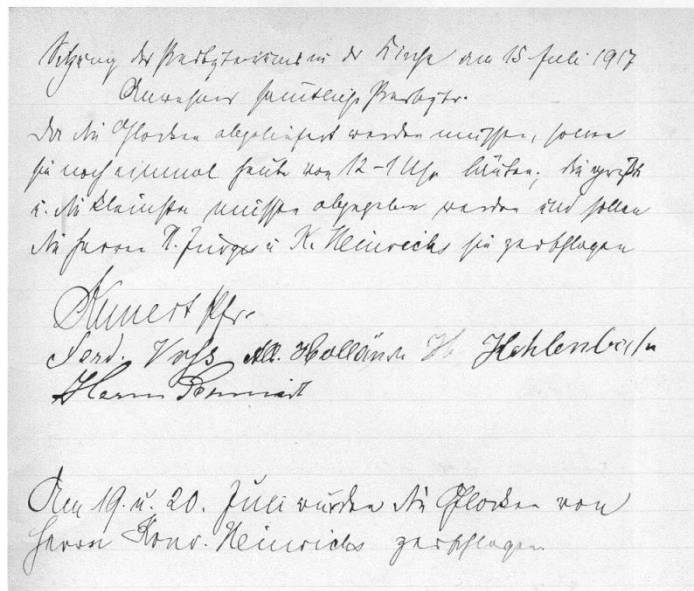 Sitzung des Presbyteriums in der Kirche am 15 Juli 1917
Anwesend sämtliche Presbyter.
Da die Glocken abgeliefert werden müssen, sollen
sie noch einmal heute von 12-1 Uhr läuten; die größte
u. die kleinste müssen abgegeben werden und sollen
die Herrn u K. Heinrichs sie zerschlagen
Kunert Pfr.
Ferd. Voss
Herm Schmidt
Am 19. u. 20. Juli wurden die Glocken von
Herrn Konr. Heinrichs zerschlagen.